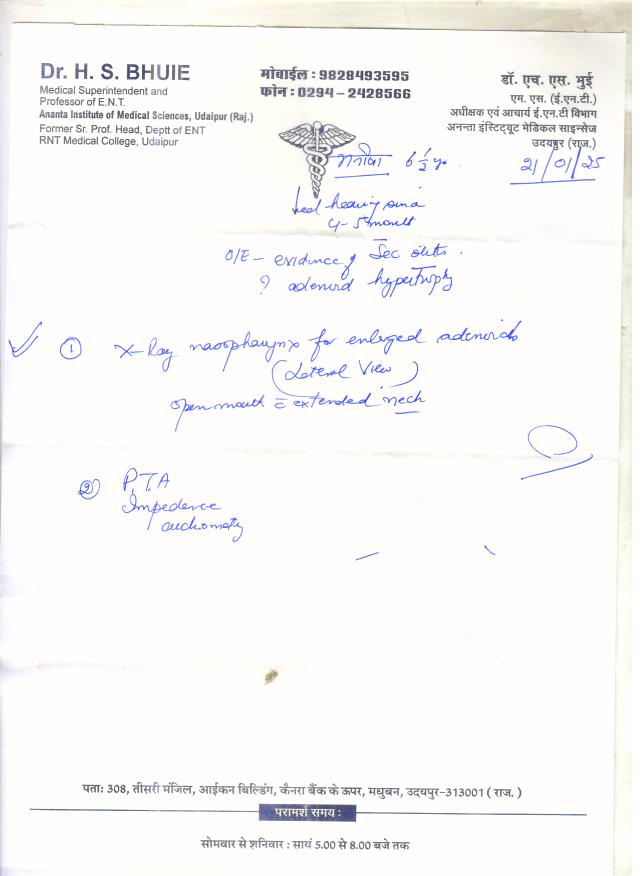 Dr. H. S. BHUIE
Medical Superintendent and
Professor of E.N.T.
Ananta Institute of Medical Sciences, Udaipur (Raj.)
Former Sr. Prof. Head, Deptt of ENT
RNT Medical College, Udaipur
मोबाईल : 9828493595
फोन : 0294 – 2428566
डॉ. एच. एस. भुई
एम. एस. (ई.एन.टी.)
अधीक्षक एवं आचार्य ई.एन.टी विभाग
अनन्ता इंस्टिट्यूट मेडिकल साइन्सेज
उदयपुर (राज.)
6 1/2 yr
21/01/25
hearing since
4-5 month
O/E – evidence of Sec otitis.
? adenoid hypertrophy
1 X-Ray nasopharynx for enlarged adenoids
(Lateral View)
open mouth = extended neck
2 P.T.A
Impedence
audiometry
पता: 308, तीसरी मंजिल, आईकन बिल्डिंग, कैनरा बैंक के ऊपर, मधुबन, उदयपुर-313001 ( राज. )
परामर्श समय :
सोमवार से शनिवार : सायं 5.00 से 8.00 बजे तक